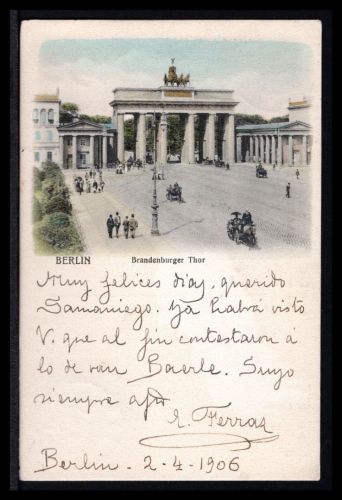 BERLIN
Brandenburger Thor
Muy felices días, querido
Samaniego. Ya habrá visto
V. que al fin contestaron á
lo de van Baerle. Suyo
siempre afº
E. Ferraz
Berlin - 2-4-1906